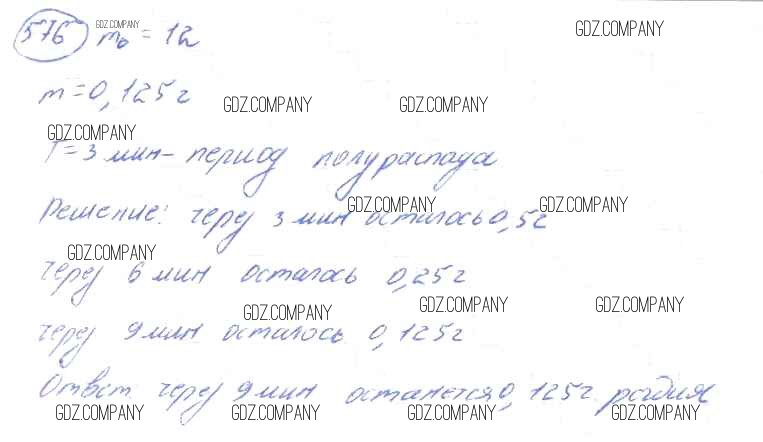 576 GDZ.COMPANY m₀ = 1г GDZ.COMPANY
m = 0,125г GDZ.COMPANY GDZ.COMPANY
GDZ.COMPANY
T = 3 мин - период полураспада
GDZ.COMPANY GDZ.COMPANY
Решение: через 3 мин осталось 0,5г
GDZ.COMPANY
через 6 мин осталось 0,25г
GDZ.COMPANY GDZ.COMPANY GDZ.COMPANY
через 9 мин осталось 0,125г
Ответ через 9 мин останется 0,125г родия
GDZ.COMPANY GDZ.COMPANY GDZ.COMPANY GDZ.COMPANY